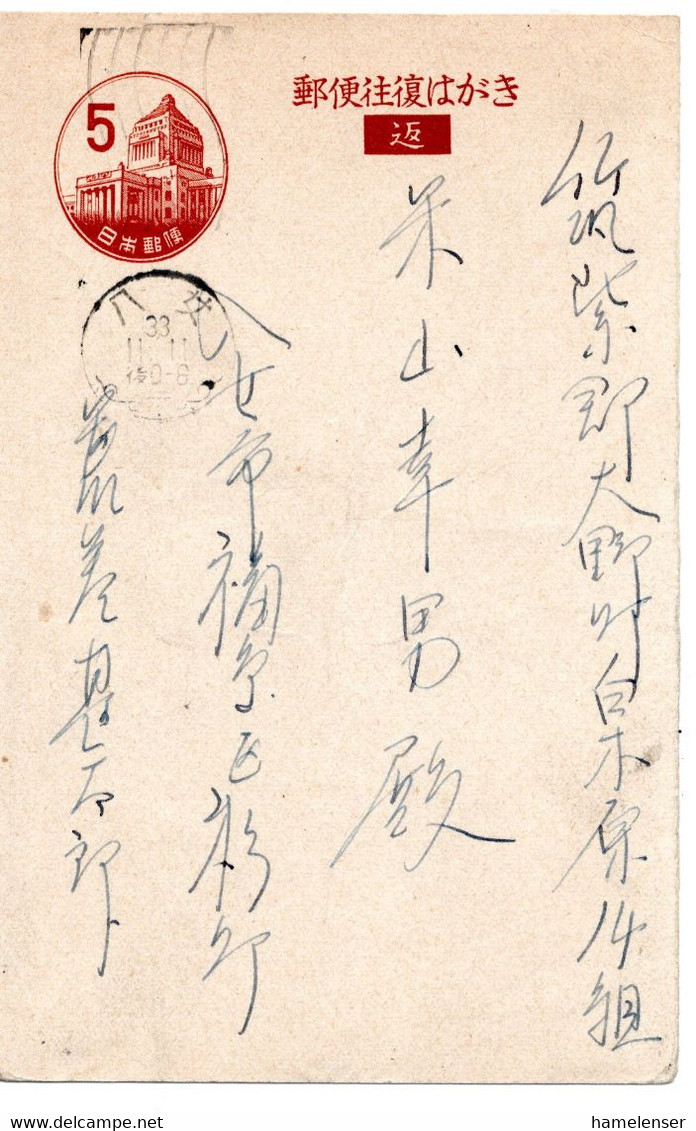 郵便往復はがき
返
5
日本郵便
八女
33
11.11
後0-6
筑紫郡大野町白木原14組
米山幸男殿
八女市福島区
太郎
www.delcampe.net
hamelenser